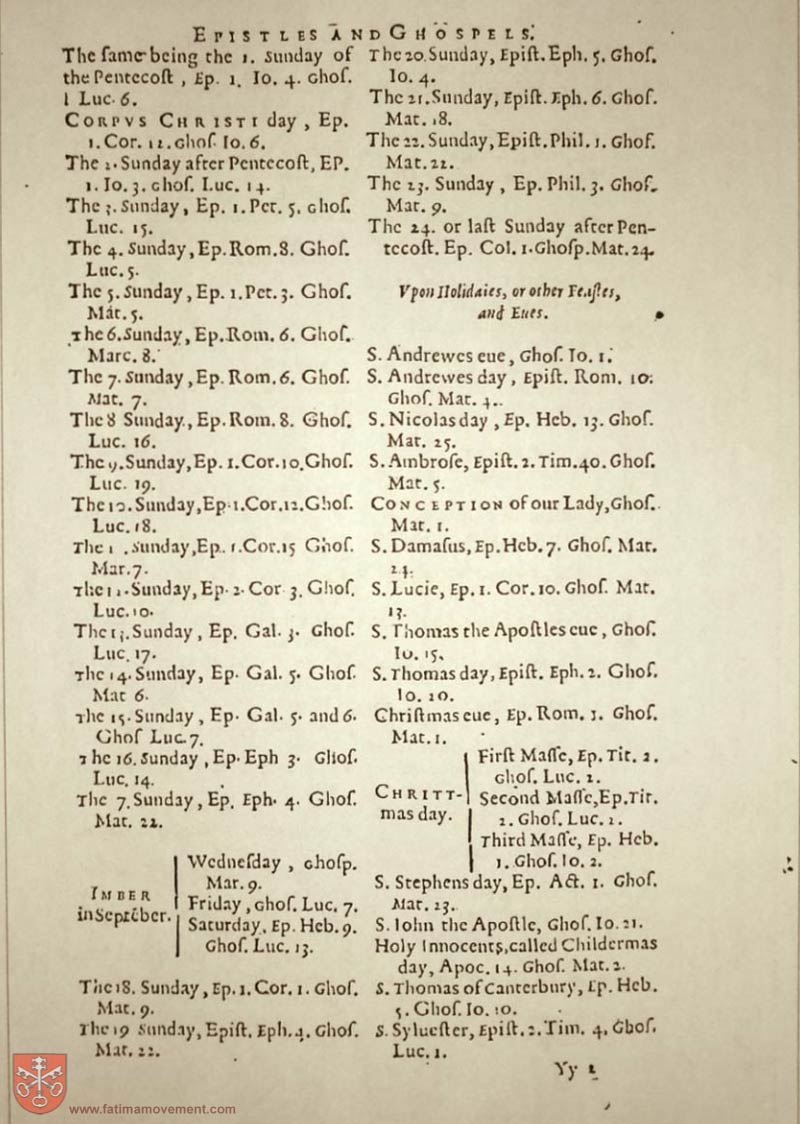 EPISTLES AND GHOSPELS.
The same being the 1. Sunday of
the Pentecost, Ep. 1. Io. 4. Ghos.
l Luc. 6.
CORPVS CHRISTI day, Ep.
1. Cor. 11. Ghos. Io. 6.
The 2. Sunday after Pentecost, EP.
1. Io. 3. Ghos. Luc. 14.
The 3. Sunday, Ep. 1. Pet. 5. Ghos.
Luc. 15.
The 4. Sunday, Ep. Rom. 8. Ghos.
Luc. 5.
The 5. Sunday, Ep. 1. Pet. 3. Ghos.
Mat. 5.
The 6. Sunday, Ep. Rom. 6. Ghos.
Marc. 8.
The 7. Sunday, Ep. Rom. 6. Ghos.
Mat. 7.
The 8 Sunday, Ep. Rom. 8. Ghos.
Luc. 16.
The 9. Sunday, Ep. 1. Cor. 10. Ghos.
Luc. 19.
The 10. Sunday, Ep. 1. Cor. 12. Ghos.
Luc. 18.
The 1 . Sunday, Ep. 1. Cor. 15 Ghos.
Mar. 7.
The 12. Sunday, Ep. 2. Cor 3. Ghos.
Luc. 10.
The 13. Sunday, Ep. Gal. 3. Ghos.
Luc. 17.
The 14. Sunday, Ep. Gal. 5. Ghos.
Mat 6.
The 15. Sunday, Ep. Gal. 5. and 6.
Ghos Luc. 7.
The 16. Sunday, Ep. Eph 3. Ghos.
Luc. 14.
The 7. Sunday, Ep. Eph. 4. Ghos.
Mat. 22.
IMBER
in Septēber.
Wednesday, Ghosp.
Mar. 9.
Friday, Ghos. Luc. 7.
Saturday, Ep. Heb. 9.
Ghos. Luc. 13.
The 18. Sunday, Ep. 1. Cor. 1. Ghos.
Mat. 9.
The 19 Sunday, Epist. Eph. 4. Ghos.
Mat. 22.
The 20. Sunday, Epist. Eph. 5. Ghos.
Io. 4.
The 21. Sunday, Epist. Eph. 6. Ghos.
Mat. 18.
The 22. Sunday, Epist. Phil. 1. Ghos.
Mat. 22.
The 23. Sunday, Ep. Phil. 3. Ghos.
Mar. 9.
The 24. or last Sunday after Pen-
tecost. Ep. Col. 1. Ghosp. Mat. 24.
Vpon Holidaies, or other Feastes,
and Eues.
S. Andrewes eue, Ghos. Io. 1.
S. Andrewes day, Epist. Rom. 10.
Ghos. Mat. 4.
S. Nicolas day, Ep. Heb. 13. Ghos.
Mat. 25.
S. Ambrose, Epist. 2. Tim. 40. Ghos.
Mat. 5.
CONCEPTION of our Lady, Ghos.
Mat. 1.
S. Damasus, Ep. Heb. 7. Ghos. Mat.
24.
S. Lucie, Ep. 1. Cor. 10. Ghos. Mat.
13.
S. Thomas the Apostles eue, Ghos.
Io. 15.
S. Thomas day, Epist. Eph. 2. Ghos.
Io. 10.
Christmas eue, Ep. Rom. 1. Ghos.
Mat. 1.
CHRITT-
mas day.
First Masse, Ep. Tit. 2.
Ghos. Luc. 2.
Second Masse, Ep. Tit.
2. Ghos. Luc. 2.
Third Masse, Ep. Heb.
1. Ghos. Io. 2.
S. Stephens day, Ep. Act. 1. Ghos.
Mat. 23.
S. Iohn the Apostle, Ghos. Io. 21.
Holy Innocents, called Childermas
day, Apoc. 14. Ghos. Mat. 2.
S. Thomas of Canterbury, Ep. Heb.
5. Ghos. Io. 10.
S. Syluester, Epist. 2. Tim. 4. Ghos.
Luc. 1.
Yy 2
www.fatimamovement.com